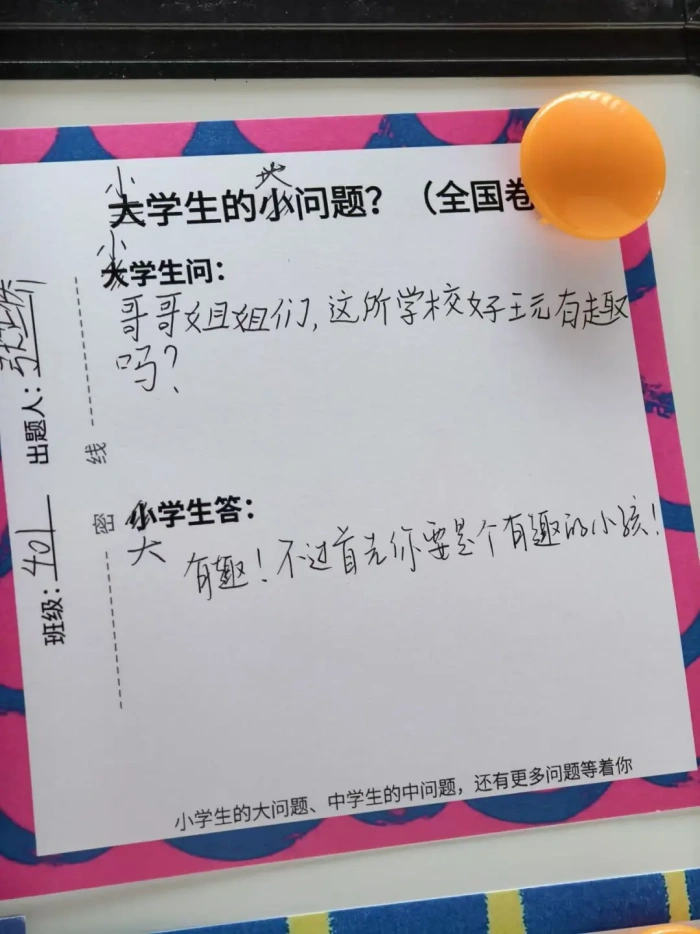 小 地
大学生的小问题？（全国卷
小
大学生问：
哥哥姐姐们，这所学校好玩有趣
吗？
小学生答：
大
有趣！不过首先你要是个有趣的小孩！
小学生的大问题、中学生的中问题，还有更多问题等着你
班级：401 出题人：
密 线